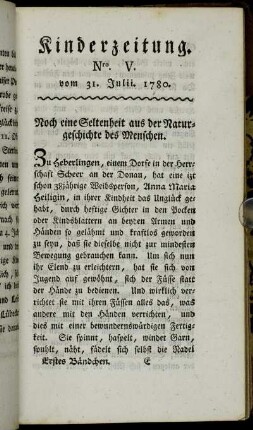 Kinderzeitung.
Nro. V.
vom 31. Julii. 1780.
Noch eine Seltenheit aus der Natur-
geschichte des Menschen.
Zu Heberlingen, einem Dorfe in der Herr-
schaft Scheer an der Donau, hat eine izt
schon 38jährige Weibsperson, Anna Maria
Heiligin, in ihrer Kindheit das Unglück ge-
habt, durch heftige Gichter in den Pocken
oder Kindsblattern an beyden Armen und
Händen so gelähmt und kraftlos geworden
zu seyn, daß sie dieselbe nicht zur mindesten
Bewegung gebrauchen kann. Um sich nun
ihr Elend zu erleichtern, hat sie sich von
Jugend auf gewöhnt, sich der Füsse statt
der Hände zu bedienen. Und wirklich ver-
richtet sie mit ihren Füssen alles das, was
andere mit den Händen verrichten, und
dies mit einer bewundernswürdigen Fertig-
keit. Sie spinnt, haspelt, windet Garn,
spuhlt, näht, fädelt sich selbst die Nadel
Erstes Bändchen. E